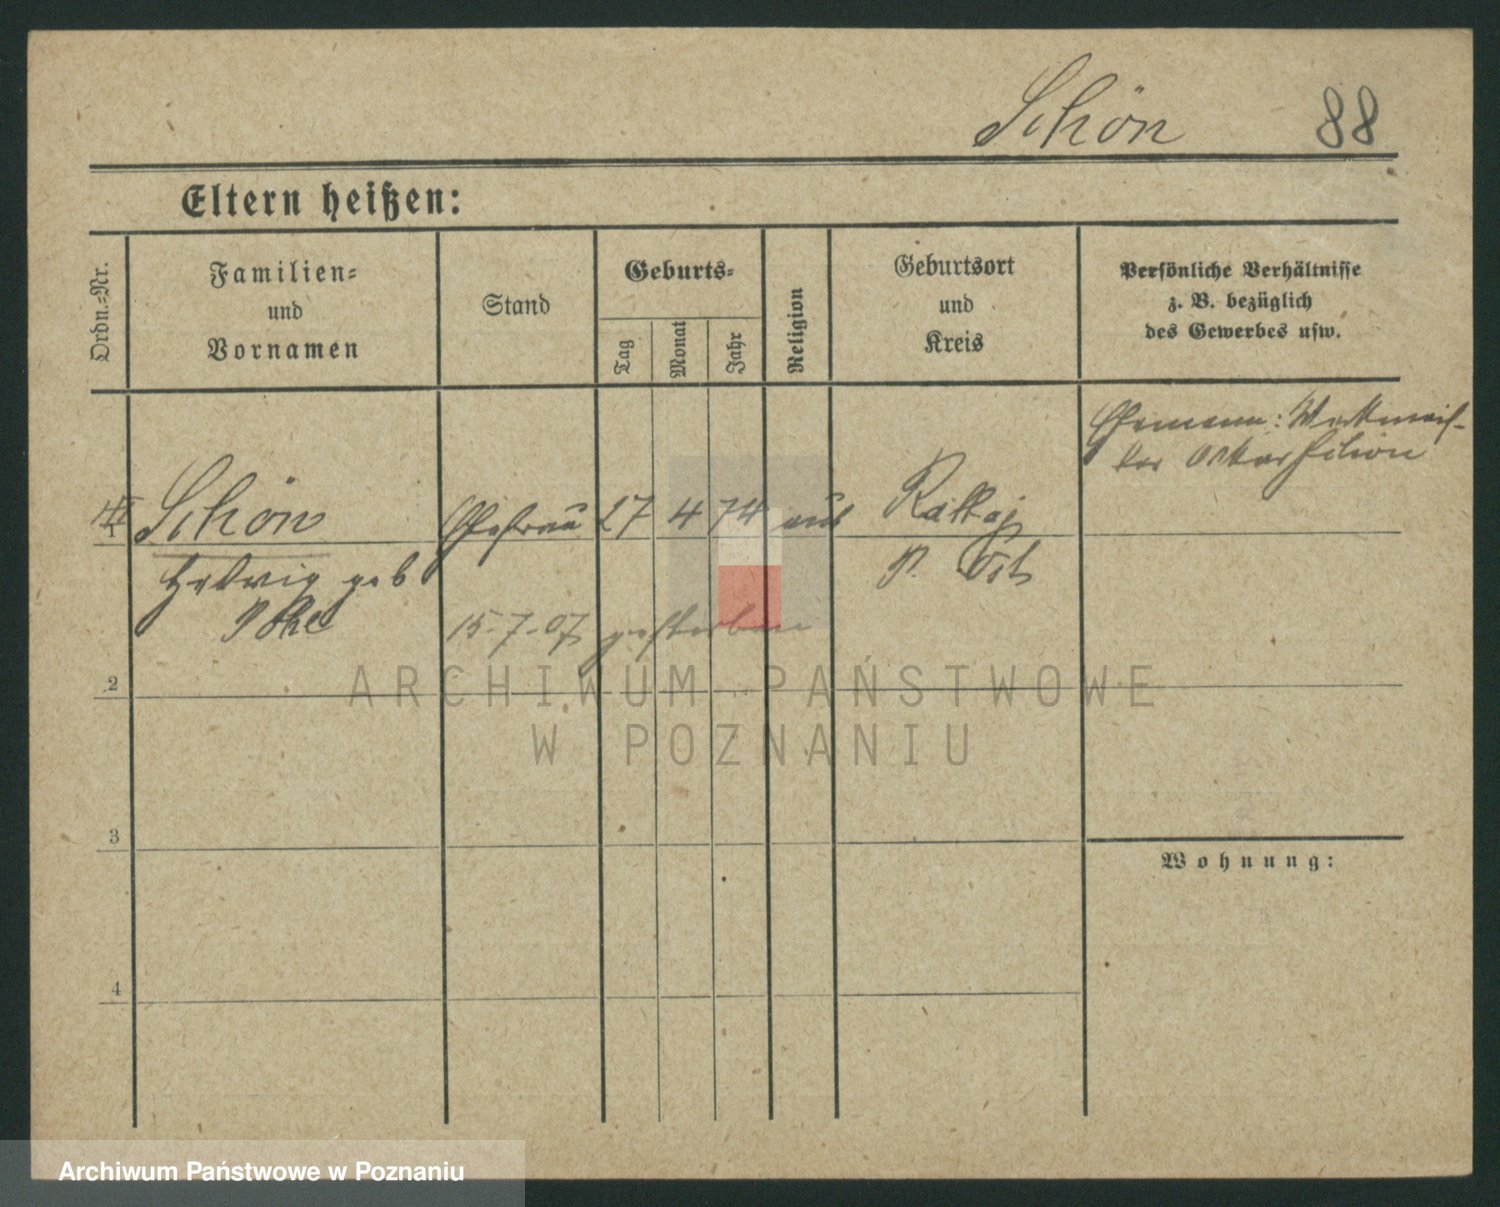 Schön 88
Eltern heißen:
Ordn.=Nr.
Familien=
und
Vornamen
Stand
Geburts=
Tag
Monat
Jahr
Religion
Geburtsort
und
Kreis
Persönliche Verhältnisse
z. B. bezüglich
des Gewerbes usw.
Ehemann: Werkmeis-
ter Oskar Schön
1 Schön Ehefrau 27 4 74 Rattaj
Hedwig geb P. Ost
15-7-07 gestorben
2
3
4
Wohnung:
ARCHIWUM PAŃSTWOWE
W POZNANIU
Archiwum Państwowe w Poznaniu